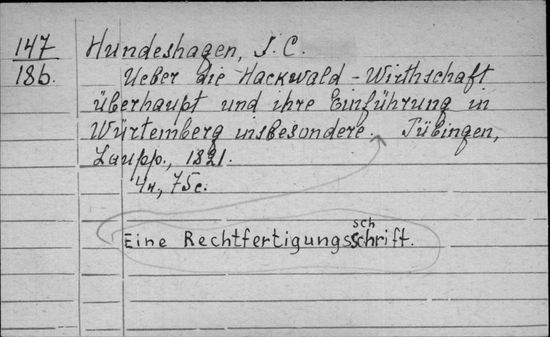 147
18b.
Hundeshagen, J. C.
Ueber die Hackwald-Wirthschaft
überhaupt und ihre Einführung in
Würtemberg insbesondere. Tübingen,
Laupp., 1821.
4н., 75с.
sch
Eine Rechtfertigungsschrift.